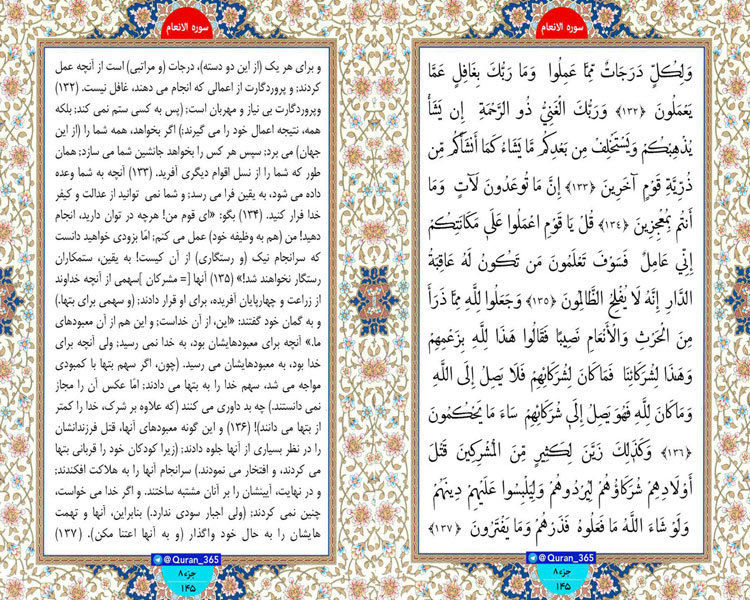 سوره الانعام
وَلِكُلٍّ دَرَجَاتٌ مِّمَّا عَمِلُوا وَمَا رَبُّكَ بِغَافِلٍ عَمَّا
يَعْمَلُونَ ﴿١٣٢﴾ وَرَبُّكَ الْغَنِيُّ ذُو الرَّحْمَةِ إِن يَشَأْ
يُذْهِبْكُمْ وَيَسْتَخْلِفْ مِن بَعْدِكُم مَّا يَشَاءُ كَمَا أَنشَأَكُم مِّن
ذُرِّيَّةِ قَوْمٍ آخَرِينَ ﴿١٣٣﴾ إِنَّ مَا تُوعَدُونَ لَآتٍ وَمَا
أَنتُم بِمُعْجِزِينَ ﴿١٣٤﴾ قُلْ يَا قَوْمِ اعْمَلُوا عَلَى مَكَانَتِكُمْ
إِنِّي عَامِلٌ فَسَوْفَ تَعْلَمُونَ مَن تَكُونُ لَهُ عَاقِبَةُ
الدَّارِ إِنَّهُ لَا يُفْلِحُ الظَّالِمُونَ ﴿١٣٥﴾ وَجَعَلُوا لِلَّهِ مِمَّا ذَرَأَ
مِنَ الْحَرْثِ وَالْأَنْعَامِ نَصِيبًا فَقَالُوا هَذَا لِلَّهِ بِزَعْمِهِمْ
وَهَذَا لِشُرَكَائِنَا فَمَا كَانَ لِشُرَكَائِهِمْ فَلَا يَصِلُ إِلَى اللَّهِ
وَمَا كَانَ لِلَّهِ فَهُوَ يَصِلُ إِلَى شُرَكَائِهِمْ سَاءَ مَا يَحْكُمُونَ
﴿١٣٦﴾ وَكَذَلِكَ زَيَّنَ لِكَثِيرٍ مِّنَ الْمُشْرِكِينَ قَتْلَ
أَوْلَادِهِمْ شُرَكَاؤُهُمْ لِيُرْدُوهُمْ وَلِيَلْبِسُوا عَلَيْهِمْ دِينَهُمْ
وَلَوْ شَاءَ اللَّهُ مَا فَعَلُوهُ فَذَرْهُمْ وَمَا يَفْتَرُونَ ﴿١٣٧﴾
@Quran_365
جزء ۸
۱۴۵
سوره الانعام
و برای هر یک (از این دو دسته)، درجات (و مراتبی) است از آنچه عمل
کردند؛ و پروردگارت از اعمالی که انجام می دهند، غافل نیست. (۱۳۲)
وپروردگارت بی نیاز و مهربان است؛ (پس به کسی ستم نمی کند؛ بلکه
همه، نتیجه اعمال خود را می گیرند؛) اگر بخواهد، همه شما را (از این
جهان) می برد؛ سپس هر کس را بخواهد جانشین شما می سازد؛ همان
طور که شما را از نسل اقوام دیگری آفرید. (۱۳۳) آنچه به شما وعده
داده می شود، به یقین فرا می رسد؛ و شما نمی توانید از عدالت و کیفر
خدا فرار کنید. (۱۳۴) بگو: «ای قوم من! هرچه در توان دارید، انجام
دهید! من (هم به وظیفه خود) عمل می کنم؛ امّا بزودی خواهید دانست
که سرانجام نیک (و رستگاری) از آن کیست! به یقین، ستمکاران
رستگار نخواهند شد!» (۱۳۵) آنها [= مشرکان ]سهمی از آنچه خداوند
از زراعت و چهارپایان آفریده، برای او قرار دادند؛ (و سهمی برای بتها،)
و به گمان خود گفتند: «این، از آن خداست؛ و این هم از آن معبودهای
ما.» آنچه برای معبودهایشان بود، به خدا نمی رسید؛ ولی آنچه برای
خدا بود، به معبودهایشان می رسید. (چون، اگر سهم بتها با کمبودی
مواجه می شد، سهم خدا را به بتها می دادند؛ امّا عکس آن را مجاز
نمی دانستند.) چه بد داوری می کنند (که علاوه بر شرک، خدا را کمتر
از بتها می دانند)! (۱۳۶) و این گونه معبودهای آنها، قتل فرزندانشان
را در نظر بسیاری از آنها جلوه دادند؛ (زیرا کودکان خود را قربانی بتها
می کردند، و افتخار می نمودند.) سرانجام آنها را به هلاکت افکندند؛
و در نهایت، آیینشان را بر آنان مشتبه ساختند. و اگر خدا می خواست،
چنین نمی کردند؛ (ولی اجبار سودی ندارد.) بنابراین، آنها و تهمت
هایشان را به حال خود واگذار (و به آنها اعتنا مکن). (۱۳۷)
@Quran_365
جزء ۸
۱۴۵